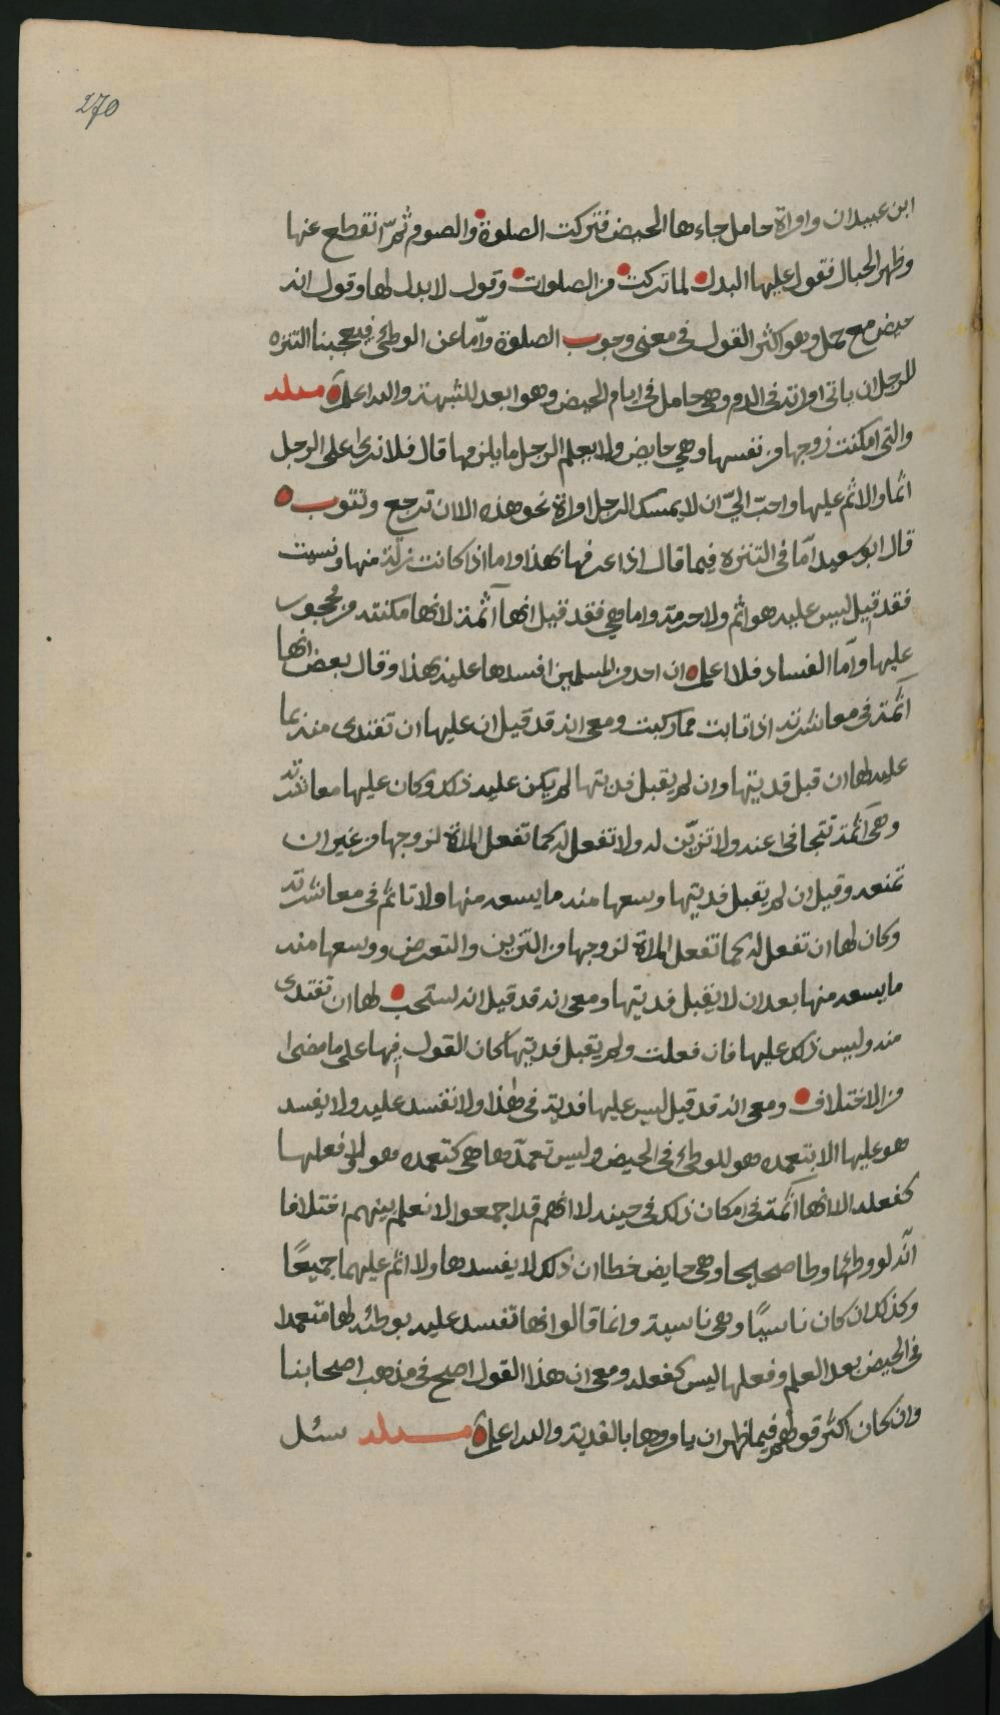 270
ابن عبيدان وامراة حامل جاءها الحيض فتركت الصلوة والصوم ثمّ انقطع عنها
وظهر الحبال فقول عليها البدل لما تركت من الصلوات وقول لا بدل لها وقول انه
حيض مع حمل وهو اكثر القول في معنى وجوب الصلوة وامّا عن الوطئ فيعجبنا التنزه
للرجل ان ياتى امراته في الدم وهي حامل في ايام الحيض وهو ابعد للشبهة والله اعلم مسئلة
والتي امكنت زوجها من نفسها وهي حايض ولم يعلم الرجل ما يلزمها قال فلا نرى على الرجل
اثما والاثم عليها واحبّ اليّ ان لا يمسك الرجل امراة نحو هذه الا ان ترجع وتتوب
قال ابو سعيد امّا في التنزه فيما قال اذا عرفها بهذا واما اذا كانت زلة منها ونسيت
فقد قيل ليس عليه هو اثم ولا حرمة واما هي فقد قيل انها آثمة لانها مكنته من محجوب
عليها وامّا الفساد فلا اعلم ان احد من المسلمين افسدها عليه بهذا وقال بعض انها
آثمة في معاشرته اذا تابت مما ركبت ومعي انه قد قيل ان عليها ان تفتدى منه بما
عليه لها ان قبل فديتها وان لم يقبل فديتها لم يكن عليه ذلك وكان عليها معاشرته
وهي آثمة تتجافى عنه ولا تزيّن له ولا تفعل له كما تفعل المراة لزوجها من غير ان
تمنعه وقيل ان لم يقبل فديتها وسعها منه ما يسعه منها ولا تاثم في معاشرته
وكان لها ان تفعل له كما تفعل المراة لزوجها من التزين والتعرض ووسعها منه
ما يسعه منها بعد ان لا يقبل فديتها ومعي انه قد قيل انه يستحب لها ان تفتدى
منه وليس ذلك عليها فان فعلت ولم يقبل فديتها كان القول فيها على ما مضى
من الاختلاف ومعي انه قد قيل ليس عليها فدية في هذا ولا تفسد عليه ولا يفسد
هو عليها الا بتعمده هو للوطئ في الحيض وليس تعمدها هي كتعمده هو ولا فعلها
كفعله الا انها آثمة في امكان ذلك في حينه لا انهم قد اجمعوا لا نعلم بينهم اختلافا
انّه لو وطئها وطا صحيحا وهي حايض خطا ان ذلك لا يفسدها ولا اثم عليهما جميعًا
وكذلك ان كان ناسيًا وهي ناسية وانما قالوا انها تفسد عليه بوطئه لها متعمدا
في الحيض بعد العلم وفعلها ليس كفعله ومعي ان هذا القول اصح في مذهب اصحابنا
وان كان اكثر قولهم فيما ظهر ان يامروها بالفدية والله اعلم مسئلة سئل